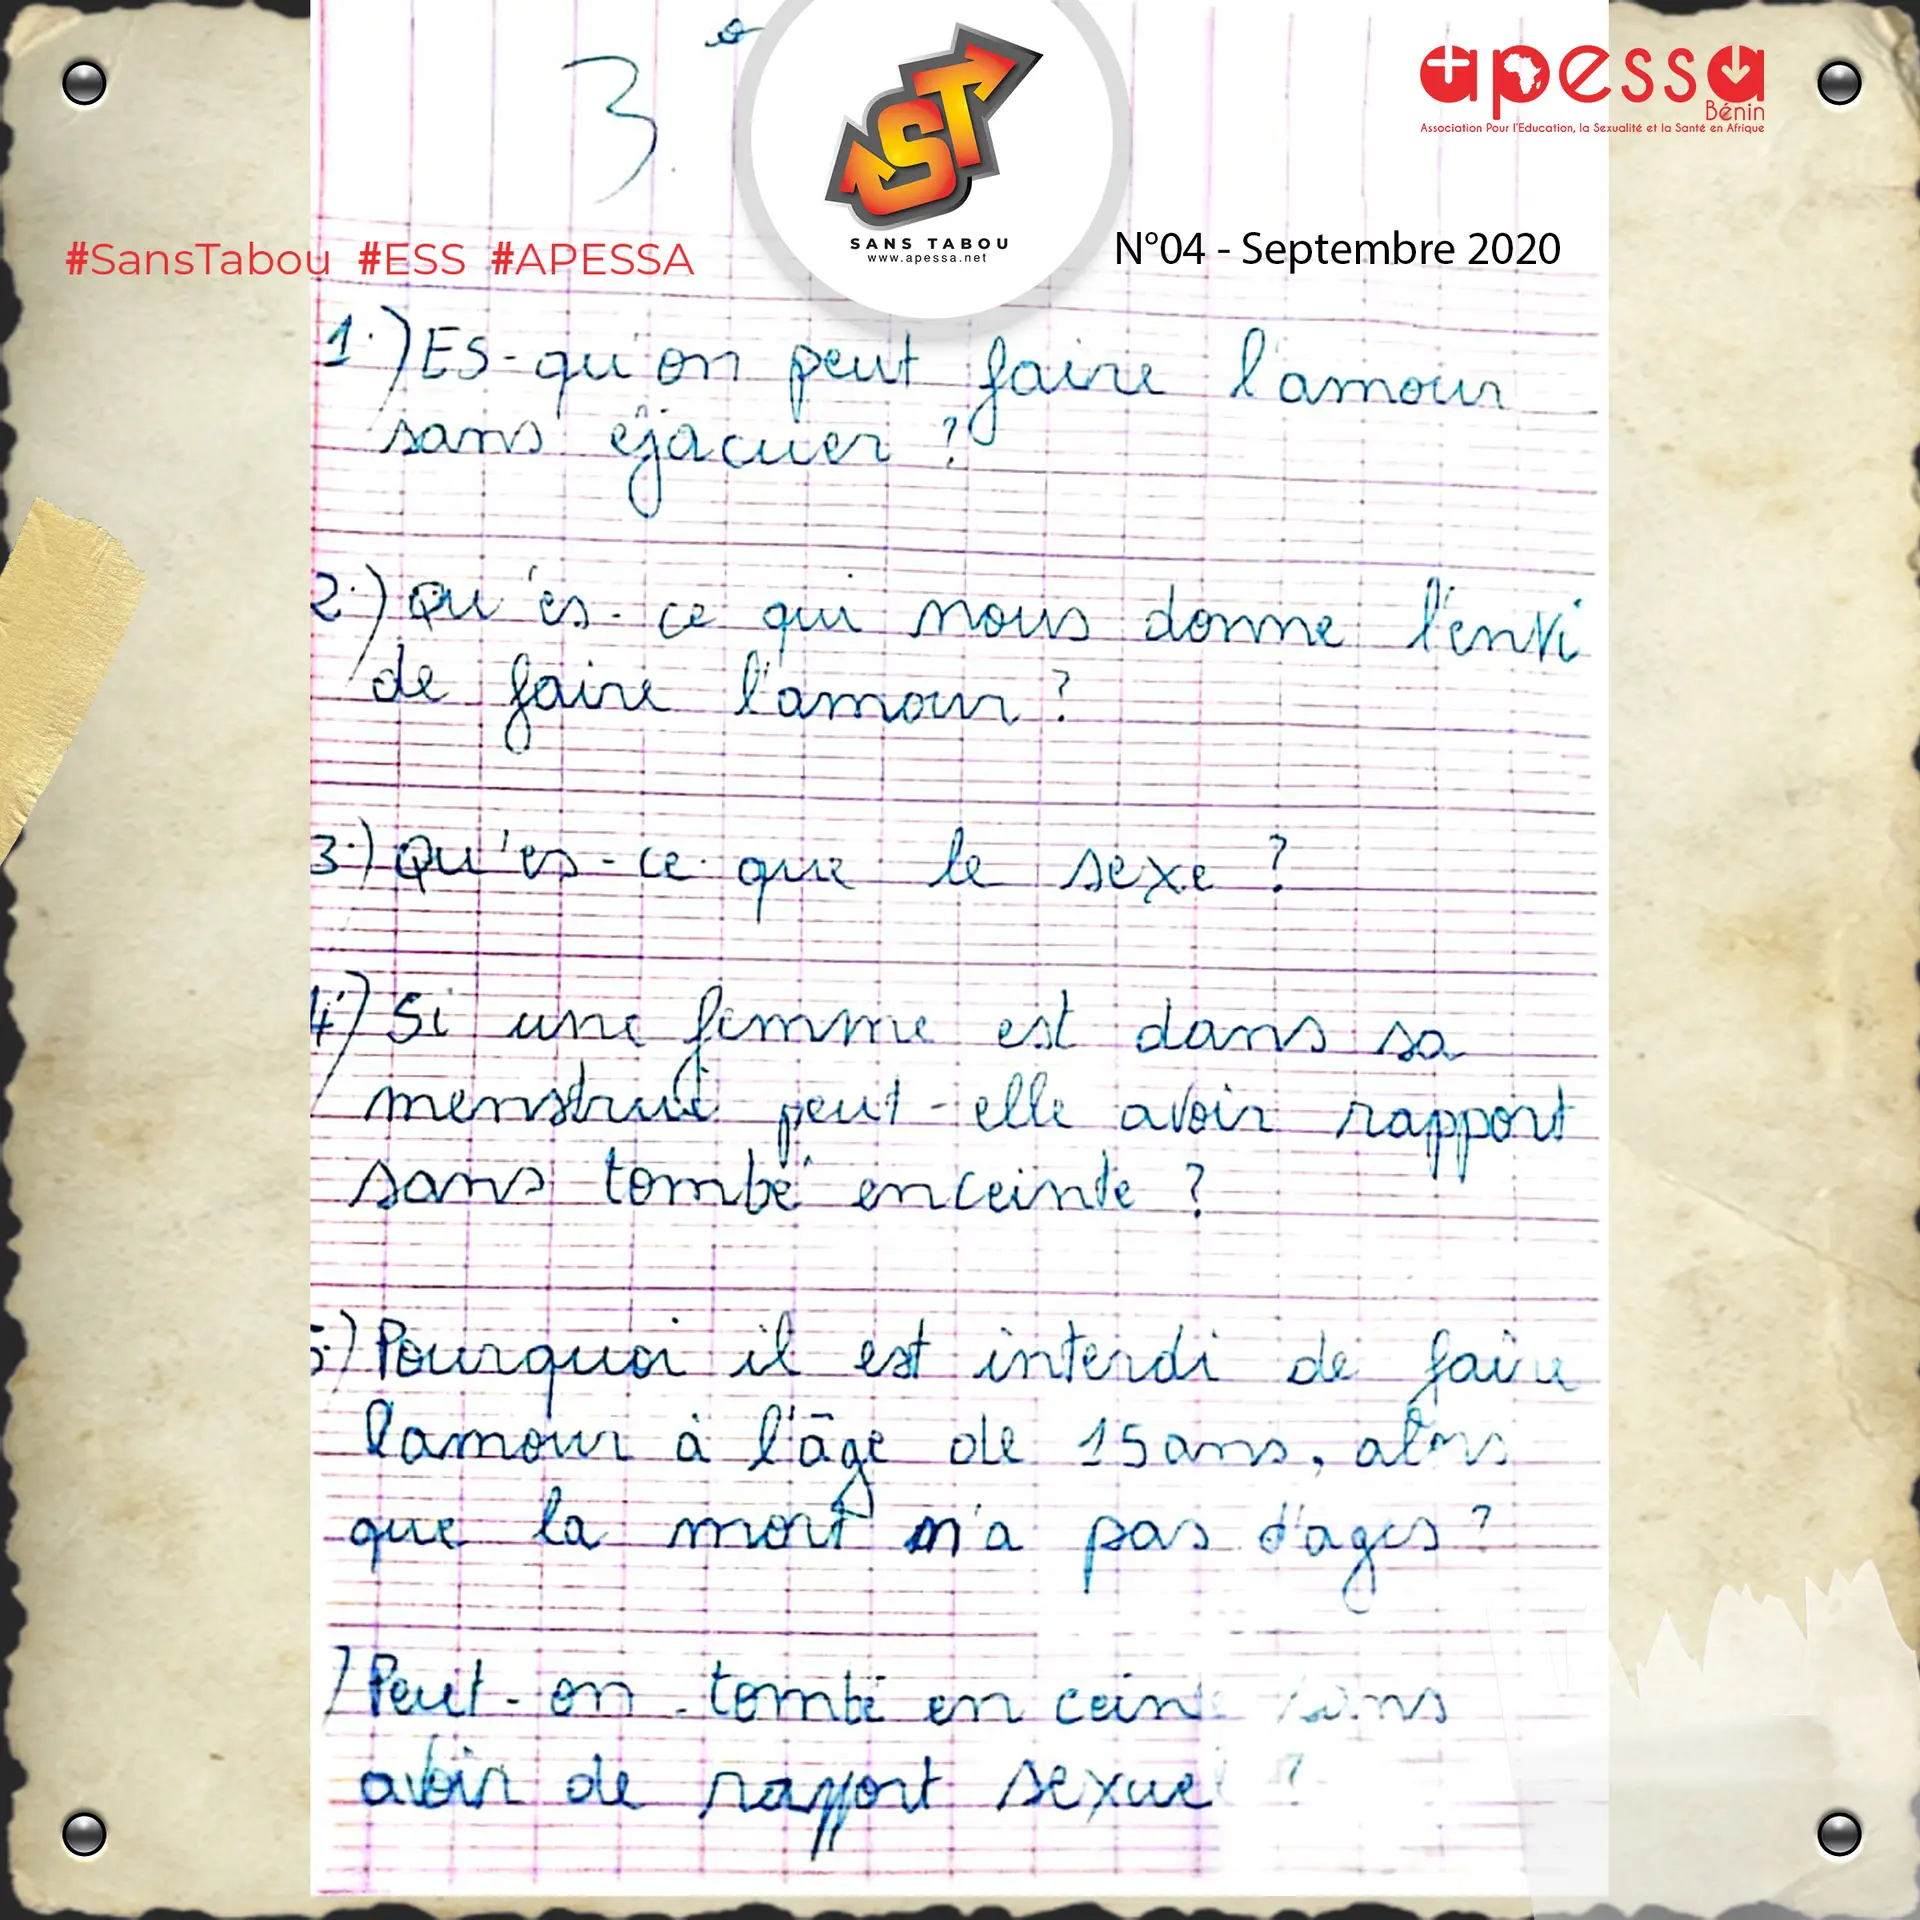 3.
ST
SANS TABOU
www.apessa.net
apessa
Bénin
Association Pour l'Education, la Sexualité et la Santé en Afrique
#SansTabou #ESS #APESSA
N°04 - Septembre 2020
1.) Es-qu'on peut faire l'amour
sans éjacuer ?
2.) Qu'es-ce qui nous donne l'envi
de faire l'amour ?
3.) Qu'es-ce que le sexe ?
4.) Si une femme est dans sa
menstrue peut-elle avoir rapport
sans tombé enceinte ?
5.) Pourquoi il est interdi de faire
l'amour à l'âge de 15 ans, alors
que la mort n'a pas d'ages ?
) Peut-on tombé en ceinte sans
avoir de rapport sexuel ?